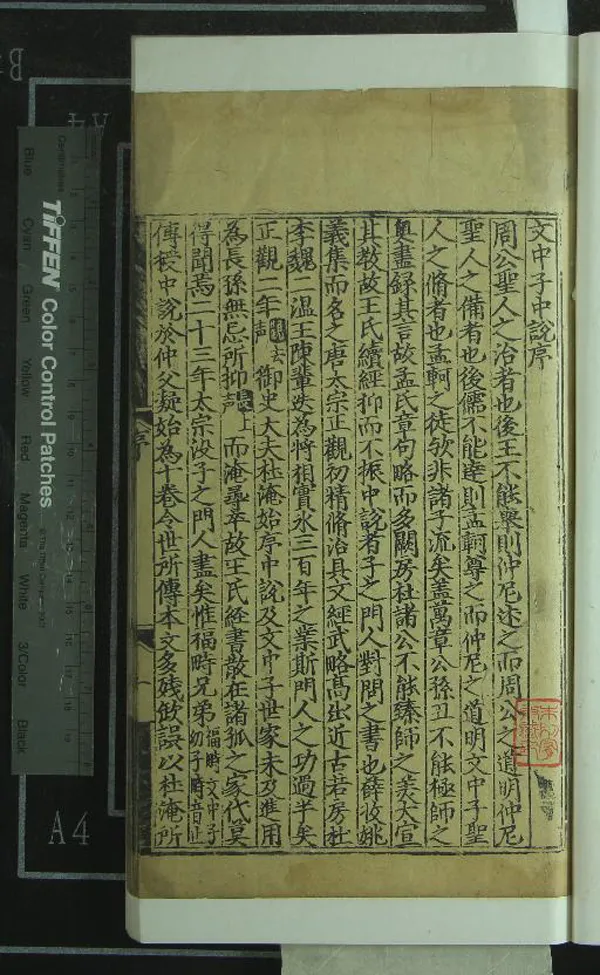 文中子中說序
周公聖人之治者也後王不能舉則仲尼述之而周公之道明仲尼
聖人之備者也後儒不能達則孟軻尊之而仲尼之道明文中子聖
人之脩者也孟軻之徒欤非諸子流矣盖萬章公孫丑不能極師之
奥盡録其言故孟氏章句略而多闕房杜諸公不能臻師之美大宣
其教故王氏續經抑而不振中說者子之門人對問之書也薛收姚
義集而名之唐太宗正觀初精脩治具文經武略髙出近古若房杜
李魏二温王陳輩迭為將相實永三百年之業斯門人之功過半矣
正觀二年
去
声
御史大夫杜淹始序中說及文中子世家未及進用
為長孫無忌所抑
上
声
而淹尋卒故王氏經書散在諸孤之家代莫
得聞焉二十三年太宗没子之門人盡矣惟福畤兄弟
福畤文中子
幼子畤音止
傳授中說於仲父凝始為十卷今世所傳本文多残缺誤以杜淹所
序
TIFFEN Color Control Patches
© The Tiffen Company, 2007
Centimetres
Blue
Cyan
Green
Yellow
Red
Magenta
White
3/Color
Black
A4
A4
B